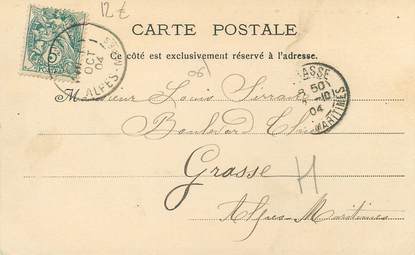 12 €
CARTE POSTALE
Ce côté est exclusivement réservé à l'adresse.
5
1
OCT
04
ALPES-M
GRASSE
50
10
04
MARITIMES
Monsieur Louis
Boulevard
Grasse
H
Alpes-Maritimes